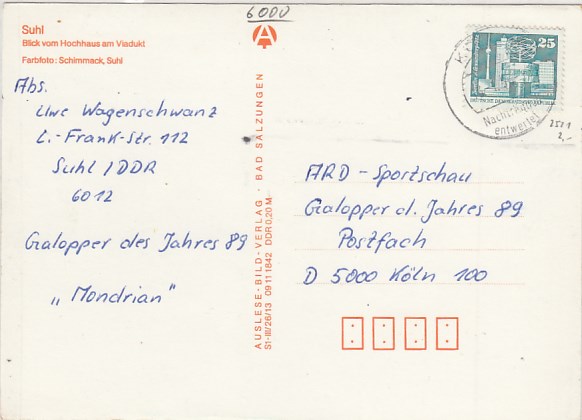 6000
Suhl
Blick vom Hochhaus am Viadukt
Farbfoto: Schimmack, Suhl
Abs.
Uwe Wagenschwanz
L.-Frank-Str. 112
Suhl / DDR
6012
Galopper des Jahres 89
„Mondrian"
AUSLESE-BILD-VERLAG · BAD SALZUNGEN
S1-III/26/13 09 11 1842 DDR 0,20 M
A
25
Nachträgl.
entwertet
2,-
ARD - Sportschau
Galopper d. Jahres 89
Postfach
D 5000 Köln 100